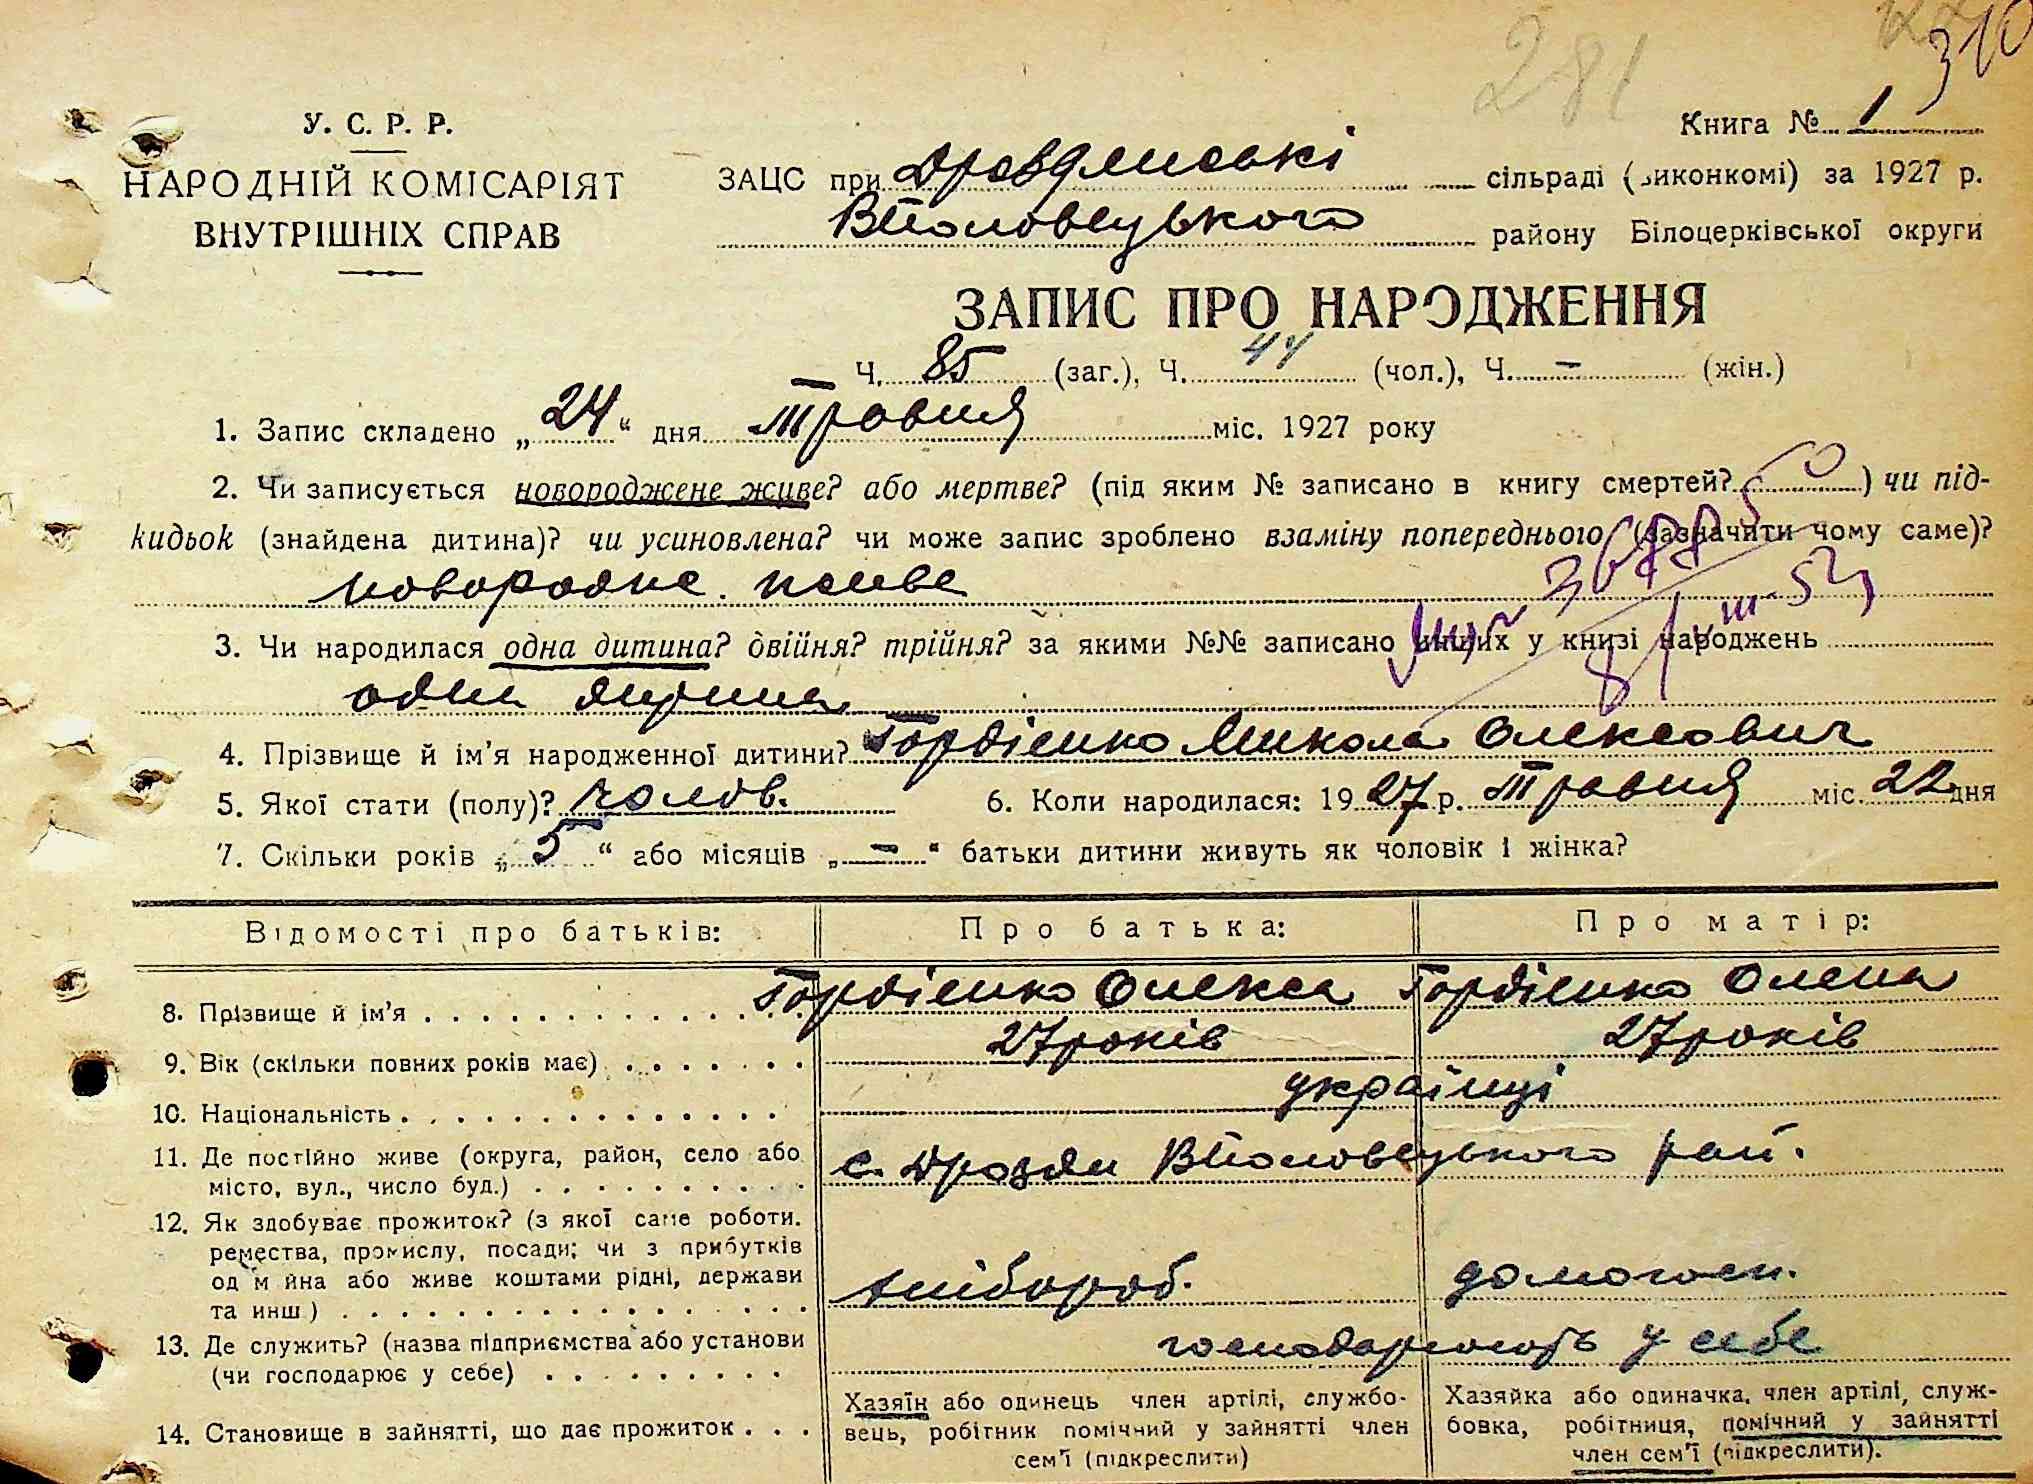 281
310
У. С. Р. Р.
НАРОДНІЙ КОМІСАРІЯТ
ВНУТРІШНІХ СПРАВ
Книга № 1
ЗАЦС при сільраді (виконкомі) за 1927 р.
В Половецького району Білоцерківської округи
ЗАПИС ПРО НАРОДЖЕННЯ
Ч. 85 (заг.), Ч. 44 (чол.), Ч. — (жін.)
1. Запис складено „24“ дня травня міс. 1927 року
2. Чи записується новороджене живе? або мертве? (під яким № записано в книгу смертей? ) чи під-
кидьок (знайдена дитина)? чи усиновлена? чи може запис зроблено взаміну попереднього (зазначити чому саме)?
новородне. живе
3. Чи народилася одна дитина? двійня? трійня? за якими №№ записано инших у книзі народжень
одна дитина
4. Прізвище й ім’я народженної дитини? Гордієнко Микола Олексович
5. Якої стати (полу)? чолов. 6. Коли народилася: 1927 р. травня міс. 22 дня
7. Скільки років „5“ або місяців „—“ батьки дитини живуть як чоловік і жінка?
Відомості про батьків: Про батька: Про матір:
8. Прізвище й ім’я Гордієнко Олекса Гордієнко Олена
9. Вік (скільки повних років має) 27 років 27 років
10. Національність українці
11. Де постійно живе (округа, район, село або
місто, вул., число буд.) с. Дрозди В Половецького рай.
12. Як здобуває прожиток? (з якої саме роботи.
ремества, промислу, посади; чи з прибутків
од м йна або живе коштами рідні, держави
та инш.) хлібороб. домогосп.
13. Де служить? (назва підприємства або установи
(чи господарює у себе) господарюють у себе
14. Становище в зайнятті, що дає прожиток
Хазяїн або одинець член артілі, службо-
вець, робітник помічний у зайнятті член
сем’ї (підкреслити)
Хазяйка або одиначка, член артілі, служ-
бовка, робітниця, помічний у зайнятті
член сем’ї (підкреслити).